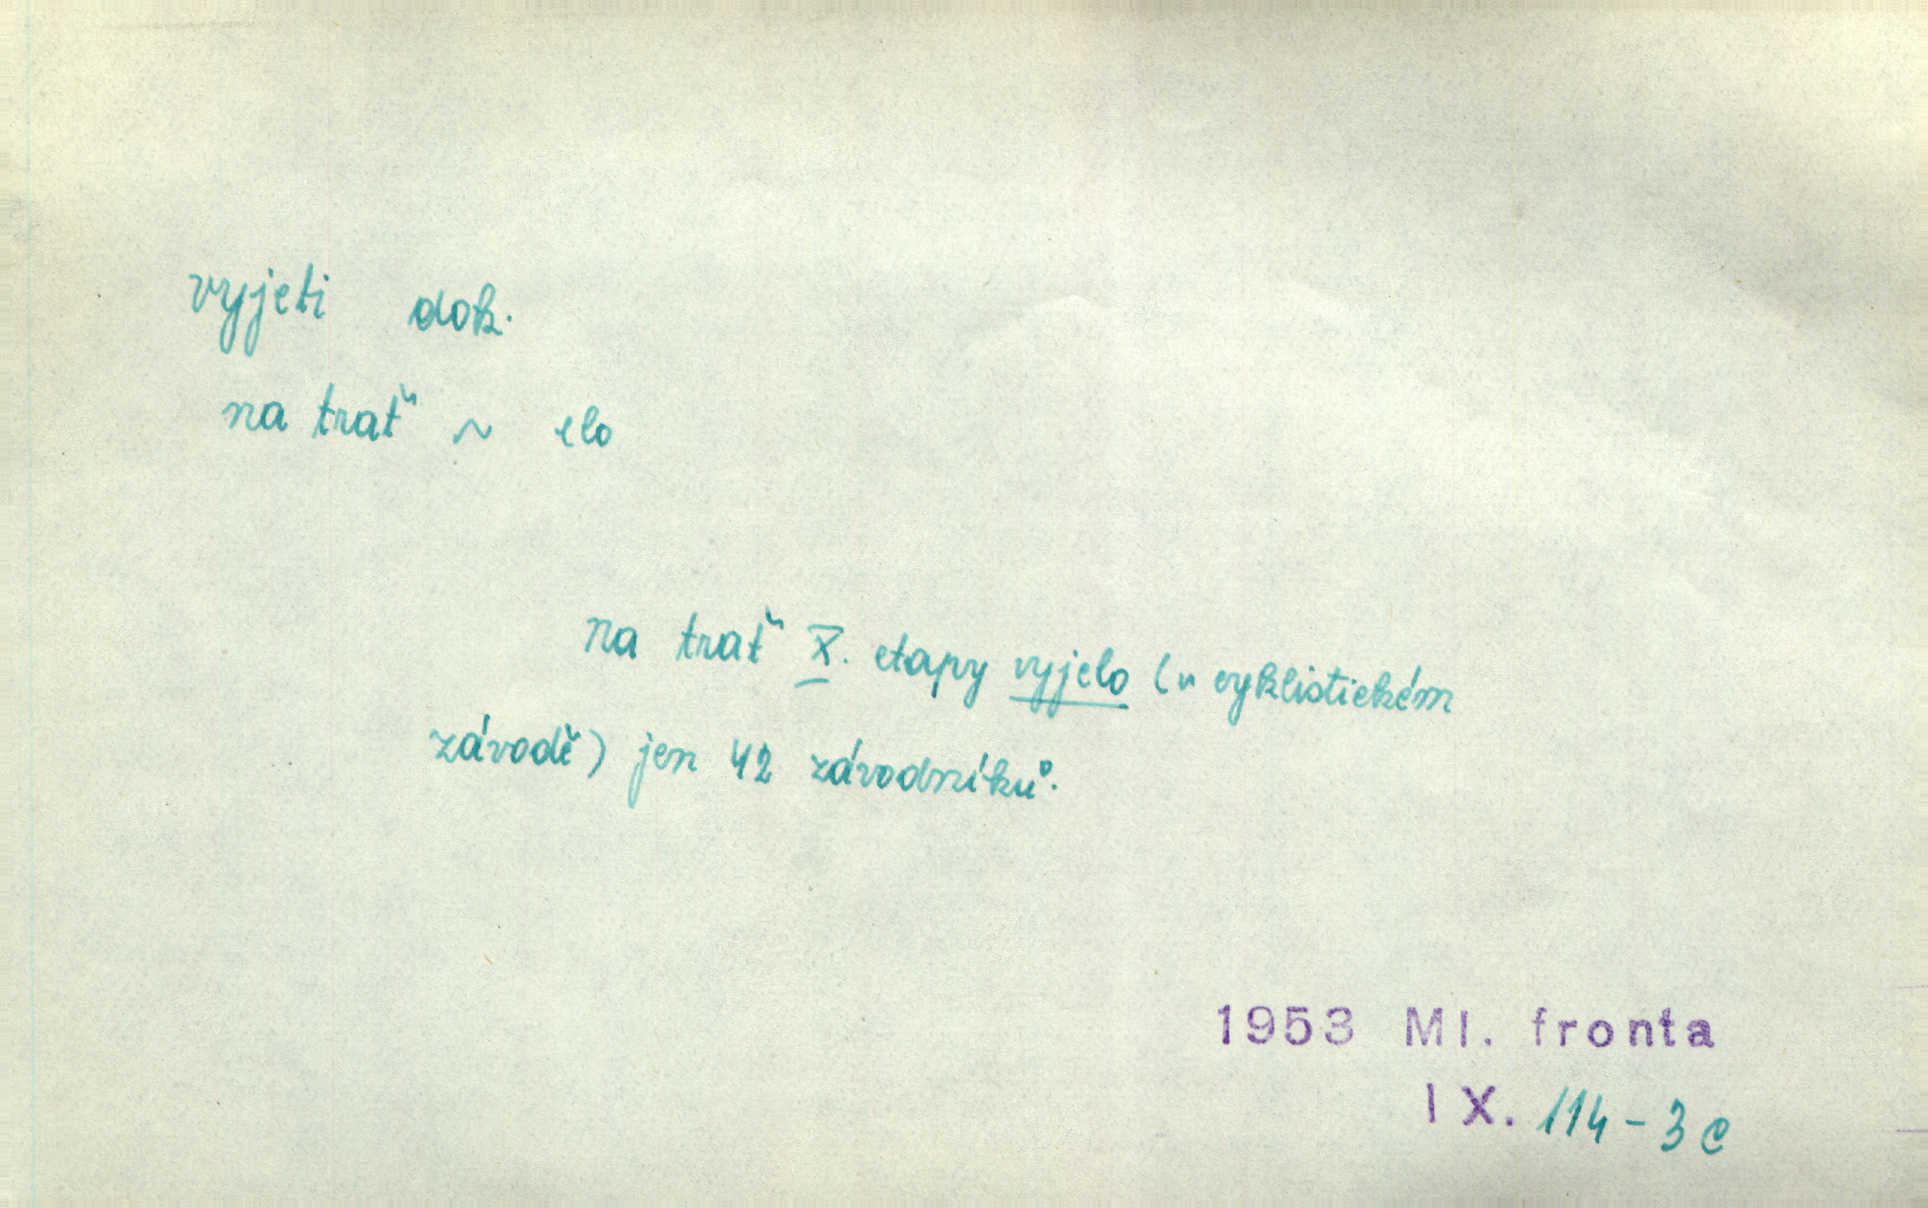 vyjeti dok.
na trať ~ elo
na trať X. etapy vyjelo (v cyklistickém
závodě) jen 42 závodníků.
1953 Ml. fronta
IX. 114-3c